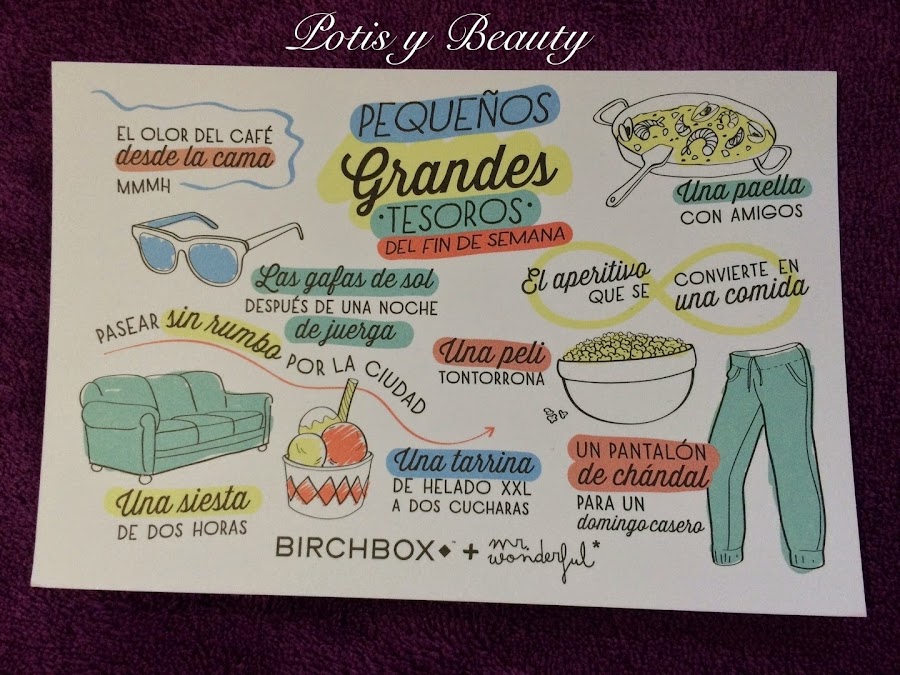 Potis y Beauty
PEQUEÑOS
Grandes
·TESOROS·
DEL FIN DE SEMANA
EL OLOR DEL CAFÉ
desde la cama
MMMH
Una paella
CON AMIGOS
Las gafas de sol
DESPUÉS DE UNA NOCHE
de juerga
El aperitivo
QUE SE
CONVIERTE EN
una comida
PASEAR sin rumbo POR LA CIUDAD
Una peli
TONTORRONA
Una siesta
DE DOS HORAS
Una tarrina
DE HELADO XXL
A DOS CUCHARAS
UN PANTALÓN
de chándal
PARA UN
domingo casero
BIRCHBOX◆™ + mr.
wonderful*